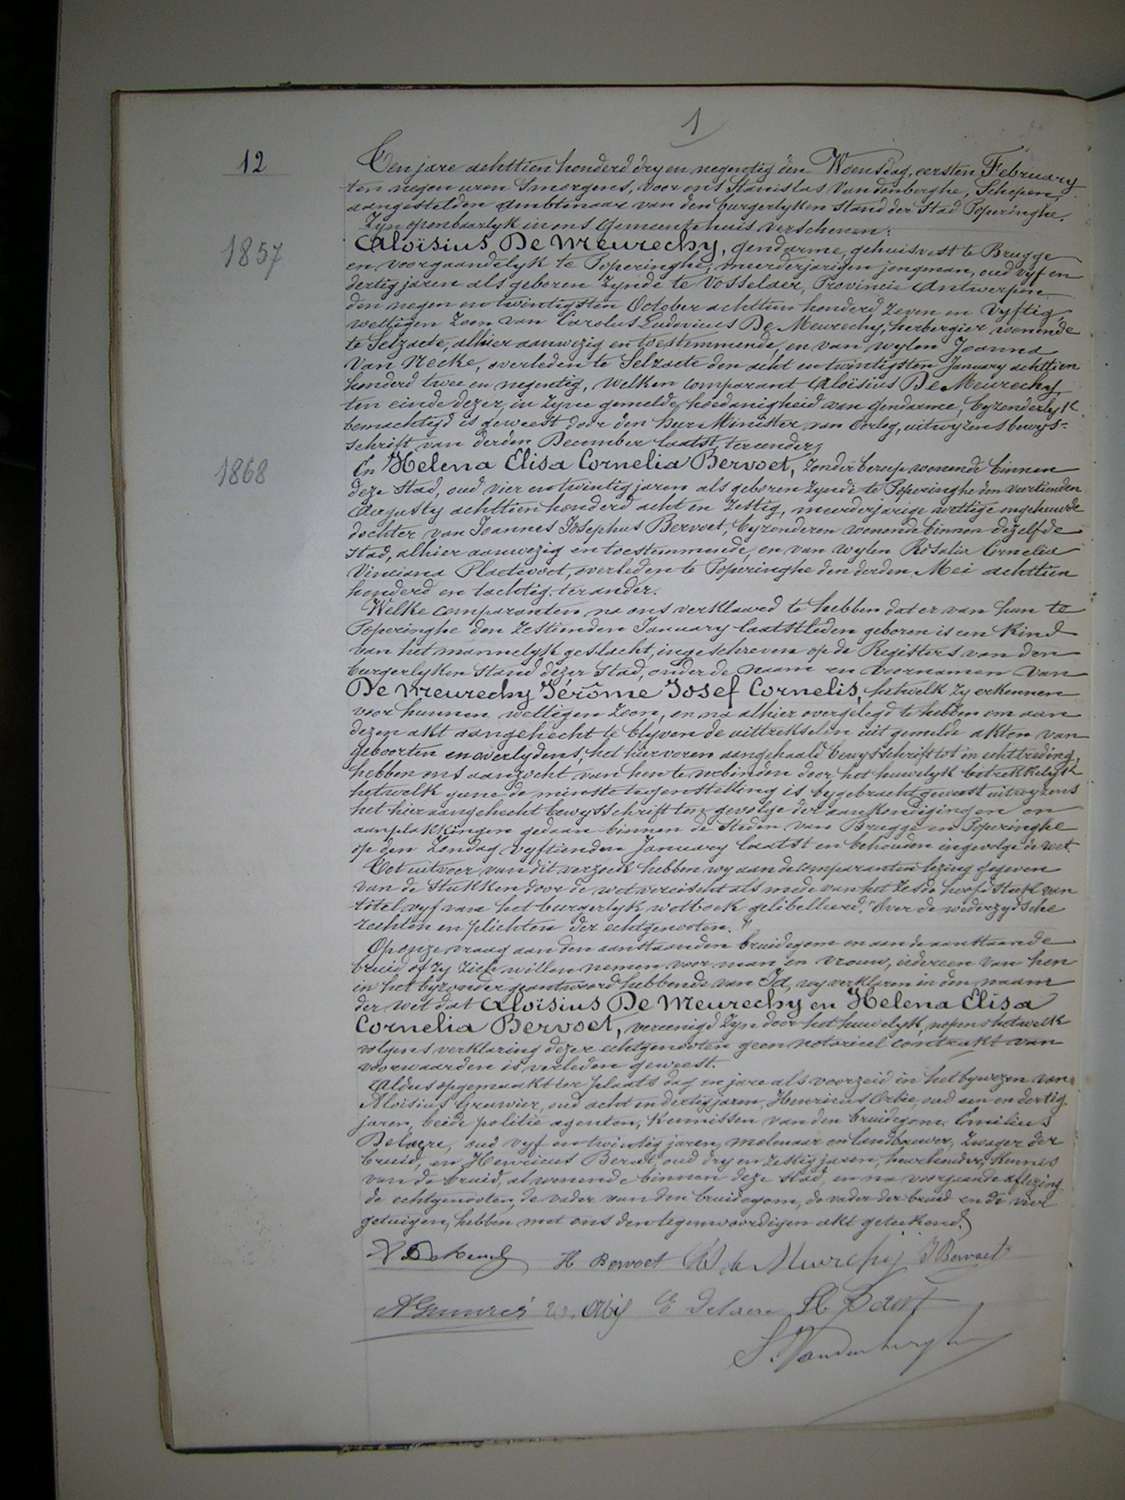 1
12
Ten jare achttien honderd dry en negentig den Woensdag, eersten February
ten negen uren smorgens, voor ons Stanislas Vandenberghe, Schepen,
aangestelden Ambtenaar van den burgerlyken Stand der Stad Poperinghe.
Zyn openbaarlyk in ons Gemeentehuis verschenen:
1857
Aloïsius De Meurechy, gendarme, gehuisvest te Brugge
en voorgaandelyk te Poperinghe, meerderjarigen jongman, oud vyf en
dertig jaren als geboren zynde te Vosselaer, Provincie Antwerpen
den negen en twintigsten October achttien honderd zeven en vyftig
wettigen zoon van Carolus Ludovicus De Meurechy, herbergier woonende
te Selzaete, alhier aanwezig en toestemmende, en van wylen Joanna
Van Hecke, overleden te Selzaete den acht en twintigsten January achttien
honderd twee en negentig, welken comparant Aloïsius De Meurechy
ten einde dezer, in zyne gemelde hoedanigheid van Gendarme, byzonderlyk
bemachtigd is geweest door den heer Minister van Oorlog, uitwyzens bewys-
schrift van derden December laatst, ter eender,
1868
En Helena Elisa Cornelia Bervoet, zonder beroep woonende binnen
deze Stad, oud vier en twintig jaren als geboren zynde te Poperinghe den veertienden
Augusty achttien honderd acht en zestig, meerderjarige wettige ongehuwde
dochter van Joannes Josephus Bervoet, byzonderen woonende binnen dezelfde
Stad, alhier aanwezig en toestemmende, en van wylen Rosalia Cornelia
Viviana Plaetevoet, overleden te Poperinghe den derden Mei achttien
honderd en tachtig, ter ander.
Welke comparanten na ons verklaard te hebben dat er van hun te
Poperinghe den zestienden January laatstleden geboren is een Kind
van het mannelyk geslacht, ingeschreven op de Registers van den
burgerlyken stand dezer Stad, onder de naam en voornamen van
De Meurechy Jérôme Josef Cornelis, hetwelk zy erkennen
voor hunnen wettigen zoon, en na alhier overgelegd te hebben om aan
dezen akt aangehecht te blyven de uittrekselen uit gemelde akten van
geboorten en overlydens, het hiervoren aangehaald bewysschrift tot in echttreding,
hebben ons aanzocht van hen te verbinden door het huwelyk betrekkelyk
hetwelk geene de minste tegenstelling is bygebracht geweest uitwyzens
het hier aangehecht bewysschrift ten gevolge der aankondigingen en
aanplakkingen gedaan binnen de Steden van Brugge en Poperinghe
op den Zondag vyftienden January laatst en behouden ingevolge de wet
Tot uitvoer van dit verzoek hebben wy aan de comparanten lezing gegeven
van de Stukken door de wet vereischt als mede van het zesde hoofdstuk van
titel vyf van het burgerlyk wetboek gelibelleerd. "Over de wederzydsche
rechten en plichten der echtgenooten."
Op onze vraag aan den aanstaanden bruidegom en aan de aanstaande
bruid of zy zich willen nemen voor man en vrouw, iedereen van hen
in het byzonder geantwoord hebbende van Ja, wy verklaren in den naam
der wet dat Aloïsius De Meurechy en Helena Elisa
Cornelia Bervoet, vereenigd zyn door het huwelyk, nopens hetwelk
volgens verklaring dezer echtgenooten geen notarieel contrakt van
voorwaarden is verleden geweest.
Aldus opgemaakt ter plaats dag en jare als voorzeid in het bywezen van
Aloïsius Gruwier, oud acht en dertig jaren, Henricus Orbie, oud een en dertig
jaren, beide politie agenten, Kennissen van den bruidegom. Emilius
Delaere, oud vyf en twintig jaren, molenaar en landbouwer, Zwager der
bruid, en Henricus Beraet, oud dry en zestig jaren, huurhouder, Kennis
van de bruid, al woonende binnen deze Stad, en na voorgaande aflezing
de echtgenooten, de vader van den bruidegom, de vader der bruid en de vier
getuigen, hebben met ons den tegenwoordigen akt geteekend.
H Bervoet de Meurechy J Bervoet
E Delaere
S. Vandenberghe